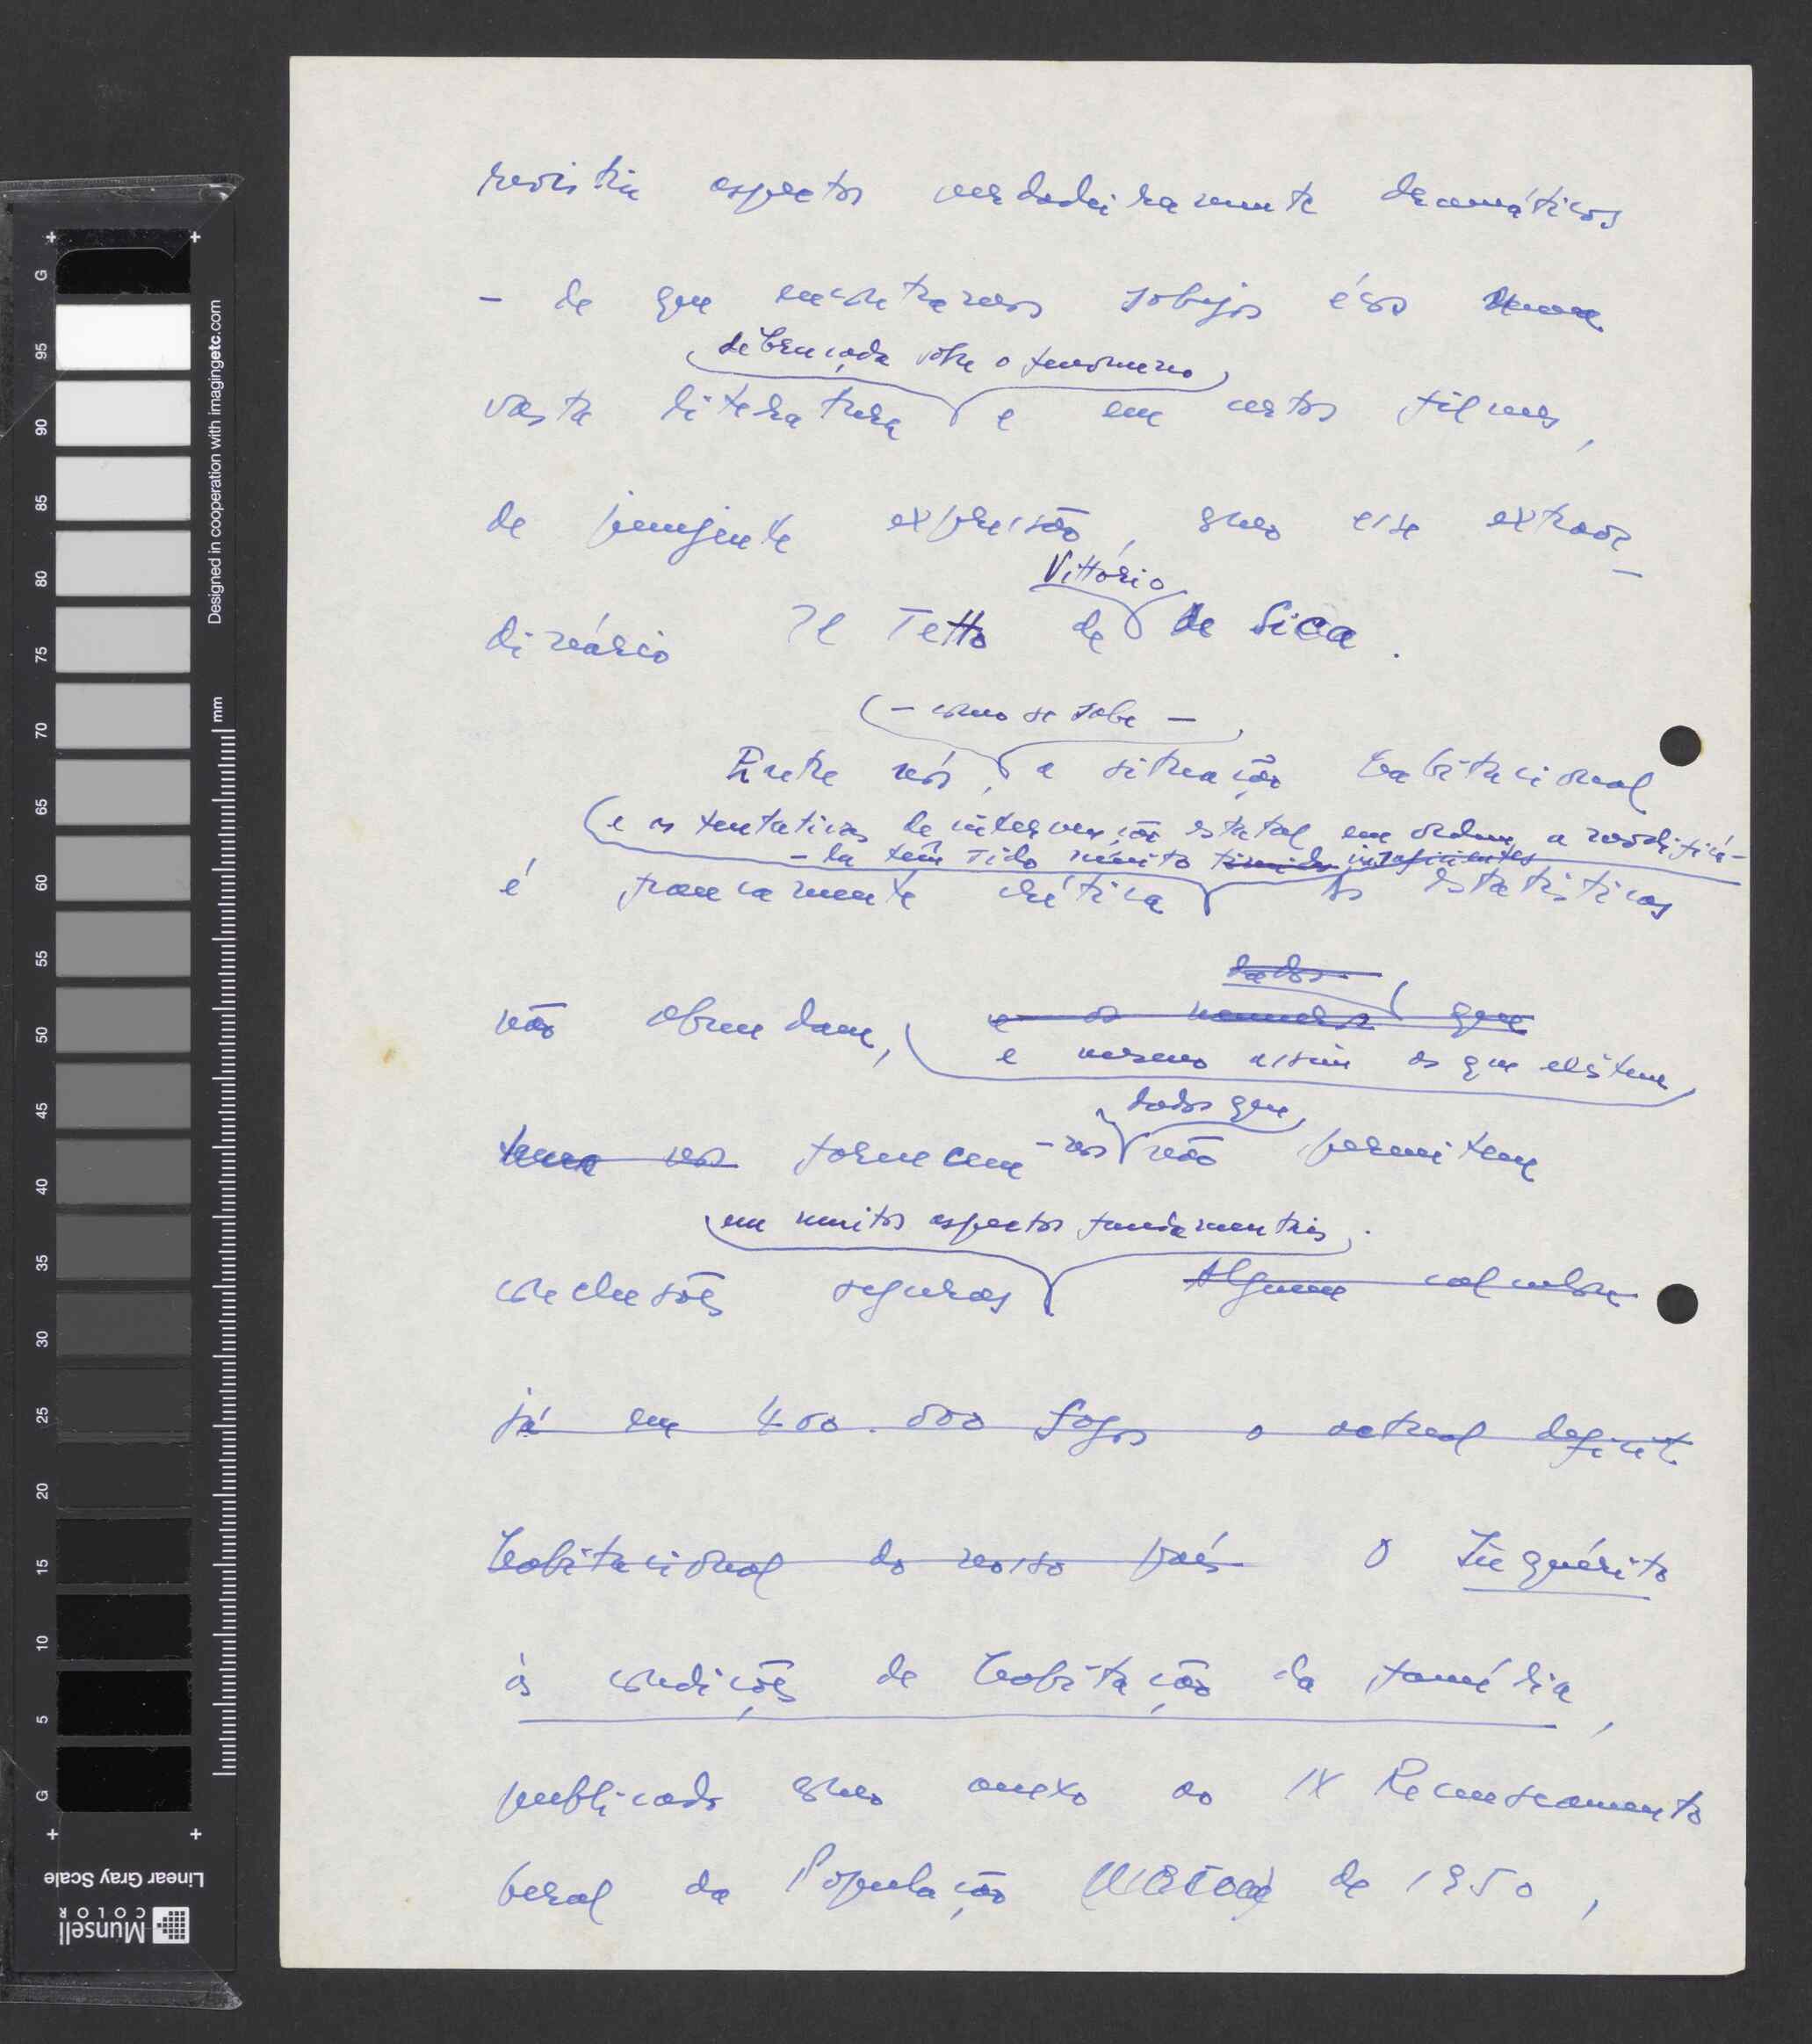 revistiu aspectos verdadeiramente dramáticos
- de que encontramos sobejos écos numa
debruçada sôbre o fenómeno
vasta literatura e em certos filmes,
de pungente expressão, como esse extraor-
Vittório
dinário Il Tetto de de Sica.
- como se sabe -
Entre nós, a situação habitacional
e as tentativas de intervenção estatal em ordem a modificá-
-la têm sido muito timidas insuficientes
é francamente crítica As estatísticas
dados
não abundam, e os numeros que
e mesmo assim as que existem
dados que
temos nos fornecem-nos não permitem
em muitos aspectos fundamentais.
conclusões seguras Alguem calculou
já em 400.000 fogos o actual deficit
habitacional do nosso país O Inquérito
às condições de habitação da família,
publicado como anexo ao IX Recenseamento
Geral da População de 1950,
G
95
90
85
80
75
70
65
60
55
50
45
40
35
30
25
20
15
10
5
G
mm
Designed in cooperation with imagingetc.com
Linear Gray Scale
Munsell
COLOR